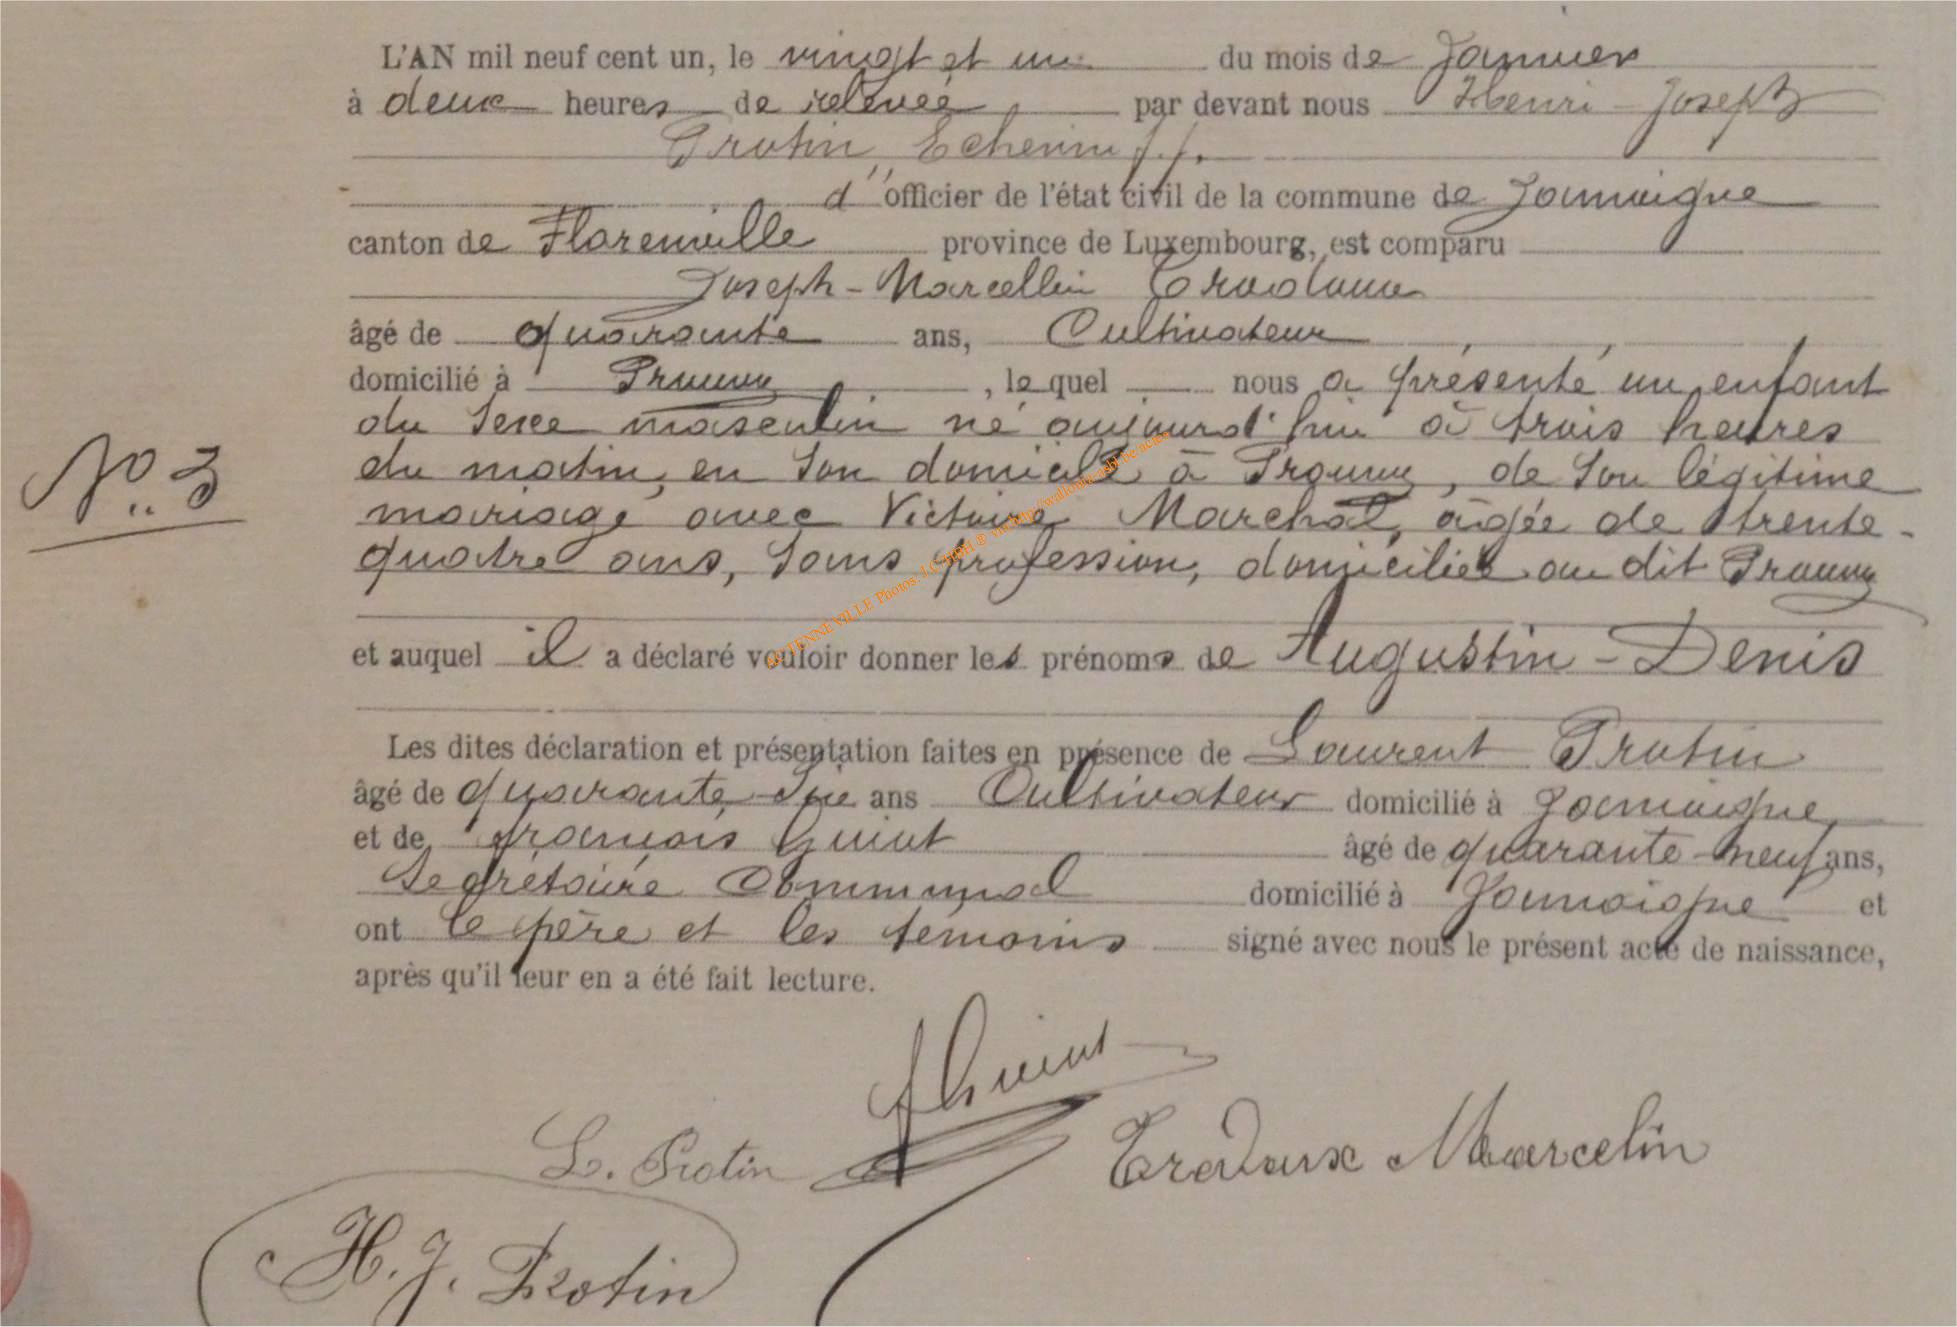 L'AN mil neuf cent un, le vingt et un du mois de Janvier
à deux heures de relevée, par devant nous Henri-Joseph
Protin, Echevin ff.
d'officier de l'état civil de la commune de Jamoigne
canton de Florenville province de Luxembourg, est comparu
Joseph-Marcellin
âgé de quarante ans, Cultivateur
domicilié à Prouvy, le quel nous a présenté un enfant
du sexe masculin né aujourd'hui à trois heures
du matin, en son domicile à Prouvy, de son légitime
mariage avec Victoire Marchal, âgée de trente-
quatre ans, sans profession, domiciliée au dit Prouvy
N° 3
et auquel il a déclaré vouloir donner les prénoms de Augustin-Denis
Les dites déclaration et présentation faites en présence de Laurent Protin
âgé de quarante-six ans Cultivateur domicilié à Jamoigne
et de François Guiot âgé de quarante-neuf ans,
Secrétaire Communal domicilié à Jamoigne et
ont le père et les témoins signé avec nous le présent acte de naissance,
après qu'il leur en a été fait lecture.
f Guiot
L. Protin
Tradaux Marcelin
H. J. Protin